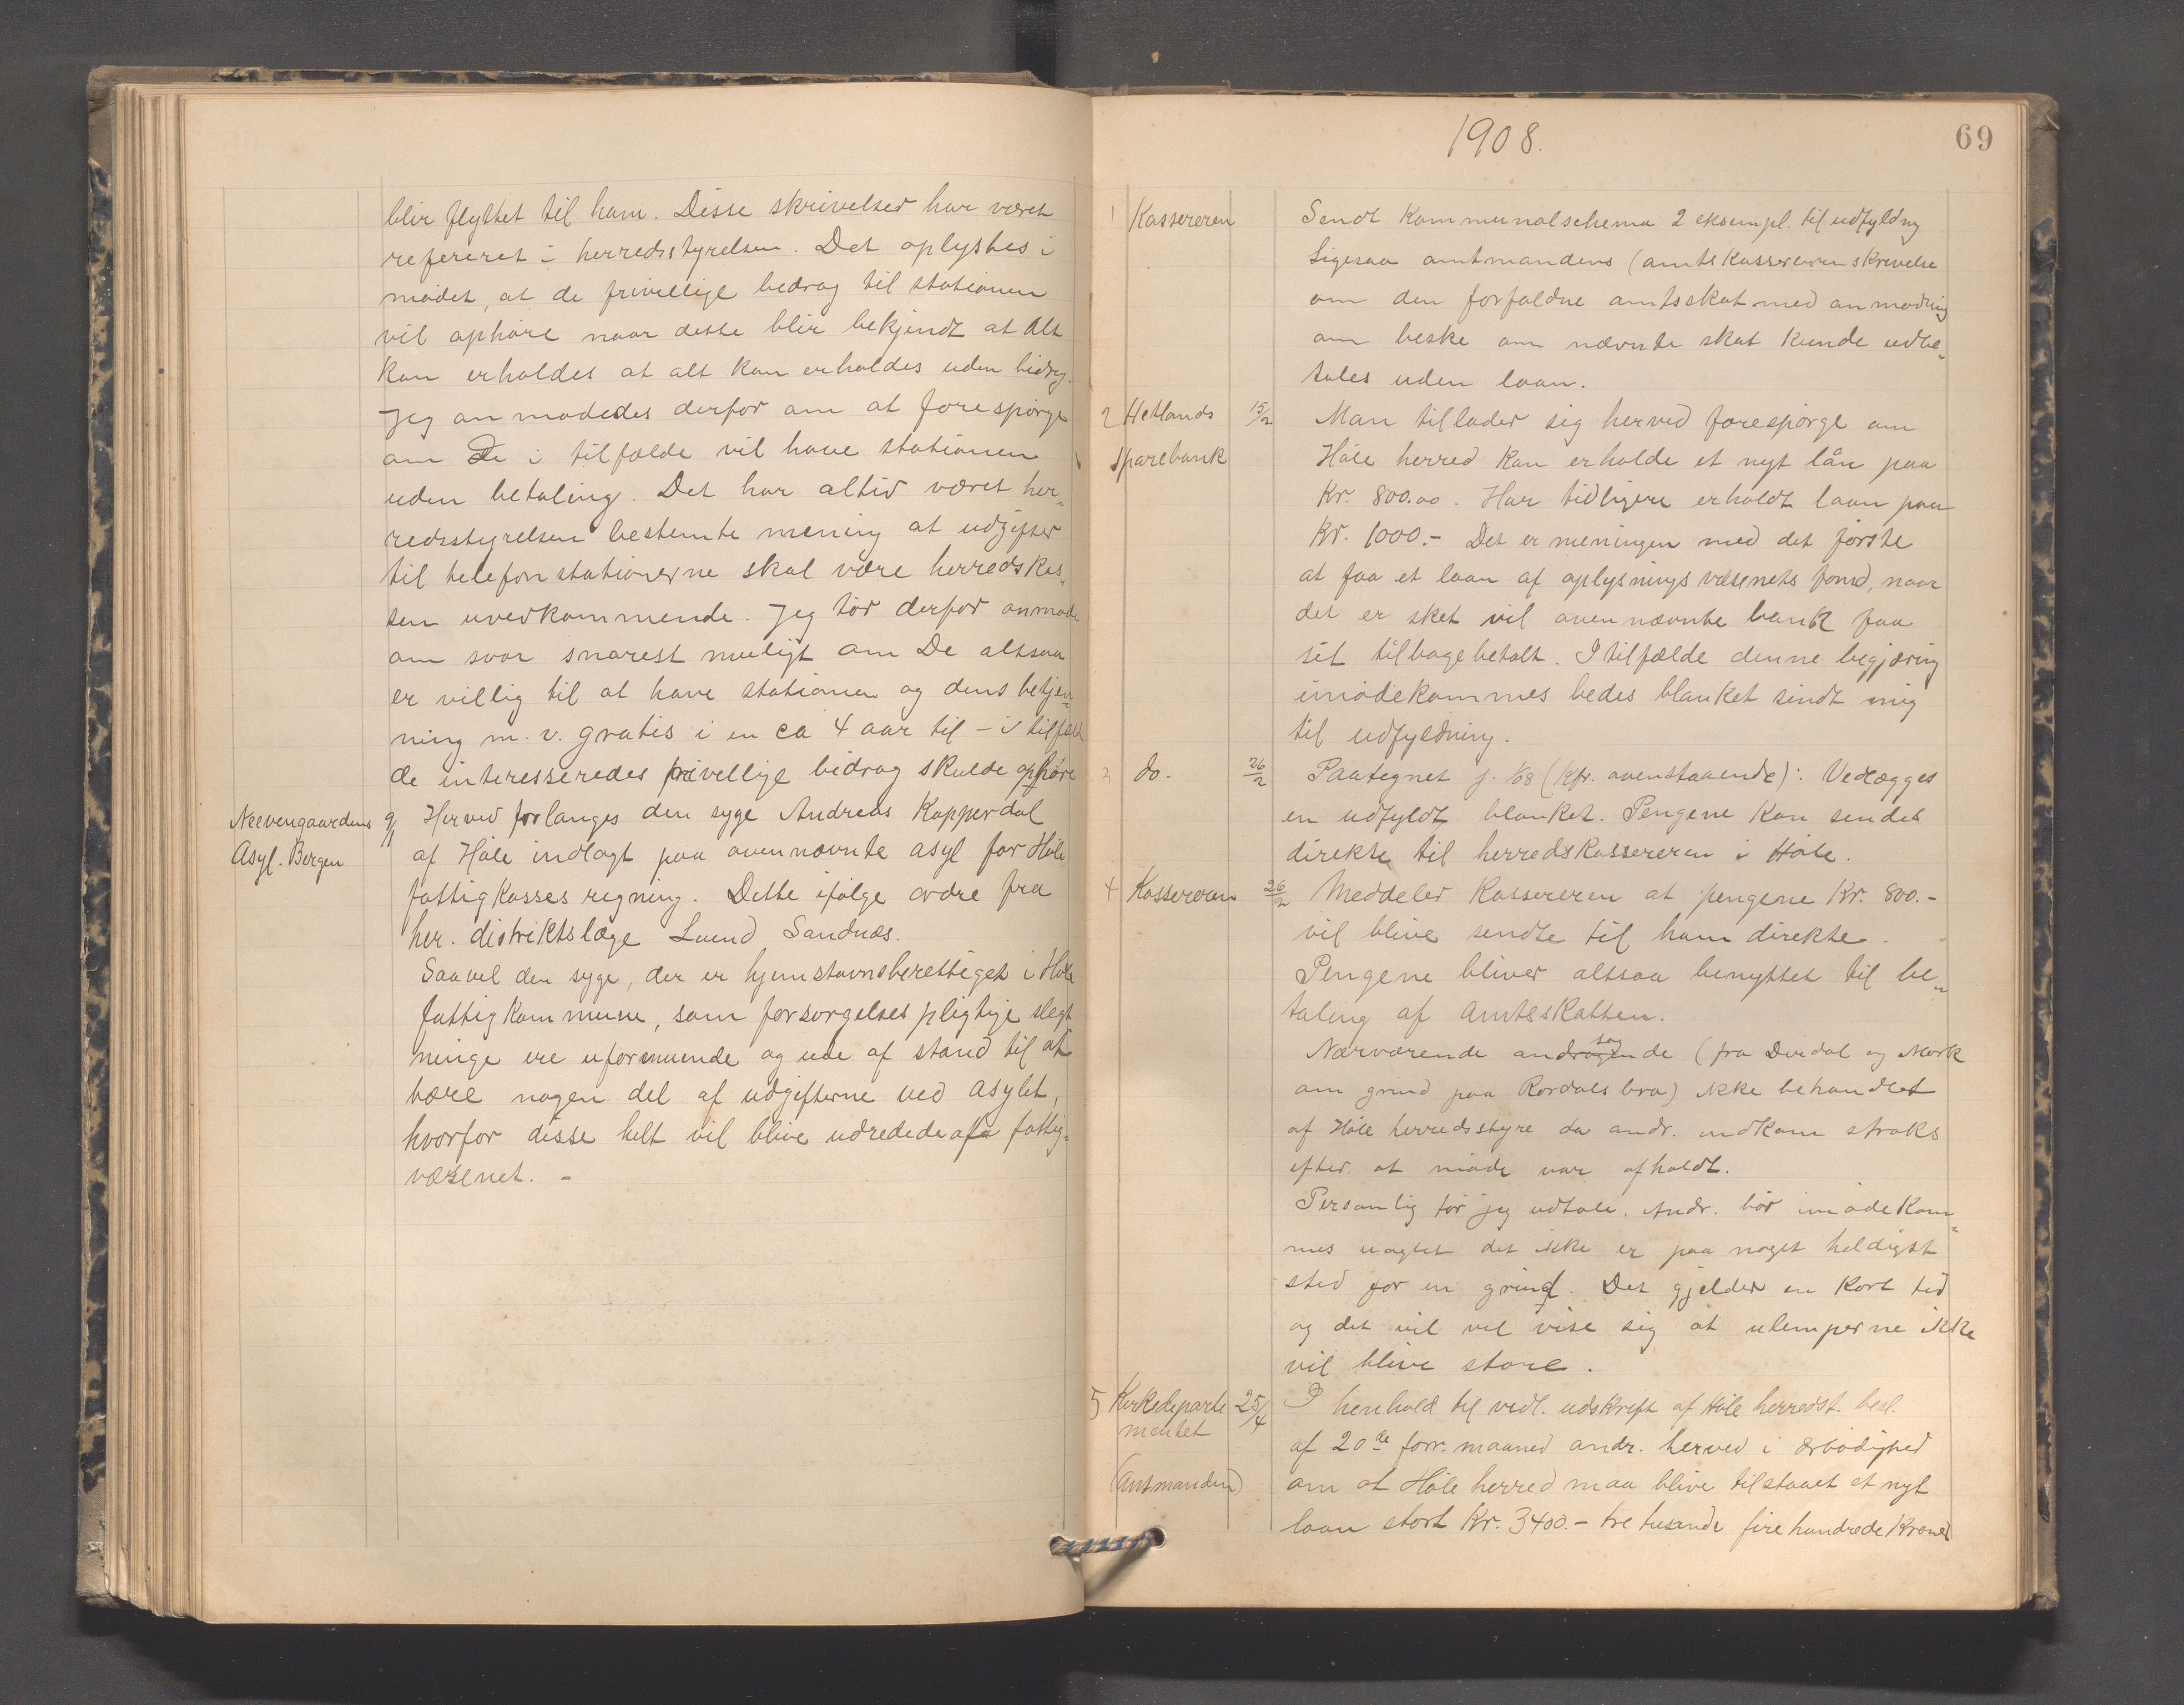 blir flyttet til ham. Disse skrivelser har været
refereret i herredsstyrelsen. Det oplystes i
mødet, at de frivillige bedrag til stationen
vil ophøre naar dette blir bekjendt at alt
kan erholdes at alt kan erholdes uden bidrag.
Jeg anmodedes derfor om at forespørge
om De i tilfælde vil have stationen
uden betaling. Det har altid været her„
redsstyrelsen bestemte mening at udgifter
til telefonstationerne skal være herredskas„
sen uvedkommende. Jeg tør derfor anmode
om svar snarest muligt om De altsaa
er villig til at have stationen og dens betjen„
ning m.v. gratis i en ca 4 aar til – i tilfæld
de interesseredes privellige bidrag skulde ophøre
Neevengaardens
Asyl. Bergen
Herved forlanges den syge Andreas Kopperdal
af Høle indlagt paa ovennævnte asyl for Høle
fattigkasses regning. Dette ifølge ordre fra
her. distriktslæge Lund Sandnæs.
Saavel den syge, der er hjemstavnsberettiget i Høle
fattigkommune, som forsorgelses pligtige slegt
ninge ere uformuende og ude af stand til at
bære nogen del af udgifterne ved asylet,
hvorfor disse helt vil blive udredede af fattig„
væsenet. –
1908.
69
1 Kassereren
Sendt Kommunalschema 2 eksempl. til udfyldng
Ligesaa amtmandens (amtskassereren skrivelse
om den forfaldne amtsskat med anmodning
om beske om nævnte skat kunde udbe„
tales uden laan.
2 Hetlands
Sparebank
15/2
Man tillader sig herved forespørge om
Høle herred kan erholde et nyt lån paa
Kr. 800.00. Har tidligere erholdt laan paa
Kr. 1000.– Det er meningen med det første
at faa et laan af oplysningsvæsenets fond, naar
det er sket vil ovennævnte bank faa
sit tilbagebetalt. I tilfælde denne begjæring
imødekommes bedes blanket sendt mig
til udfyldning.
3 do. 26/2
Paategnet j. 1/08 (kfr. ovenstaaende): Vedlægges
en udfyldt blanket. Pengene kan sendes
direkte til herredskassereren i Høle.
4 Kassereren 26/2
Meddeler Kassereren at pengene Kr. 800.–
vil blive sendte til ham direkte.
Pengene bliver altsaa benyttet til be„
taling af Amtsskatten.
Nærværende andragende sag (fra Dirdal og Mork
om grind paa Rordalsbra) ikke behandlet
af Høle herredsstyre da andr. indkom straks
efter at møde var afholdt.
Personlig tør jeg udtale. Andr. bør imødekom„
mes uagtet det ikke er paa noget heldigst
sted for en grind. Det gjelder en kort tid
og det vil vel vise sig at ulemperne ikke
vil blive store.
5 Kirkedeparte
mentet
(Amtmanden)
25/4
I henhold til vedl. udskrift af Høle herredst. besl.
af 20de forr. maaned andr. herved i ærbødighed
om at Høle herred maa blive tilstaaet et nyt
laan stort Kr. 3400.– tre tusende fire hundrede Kroner